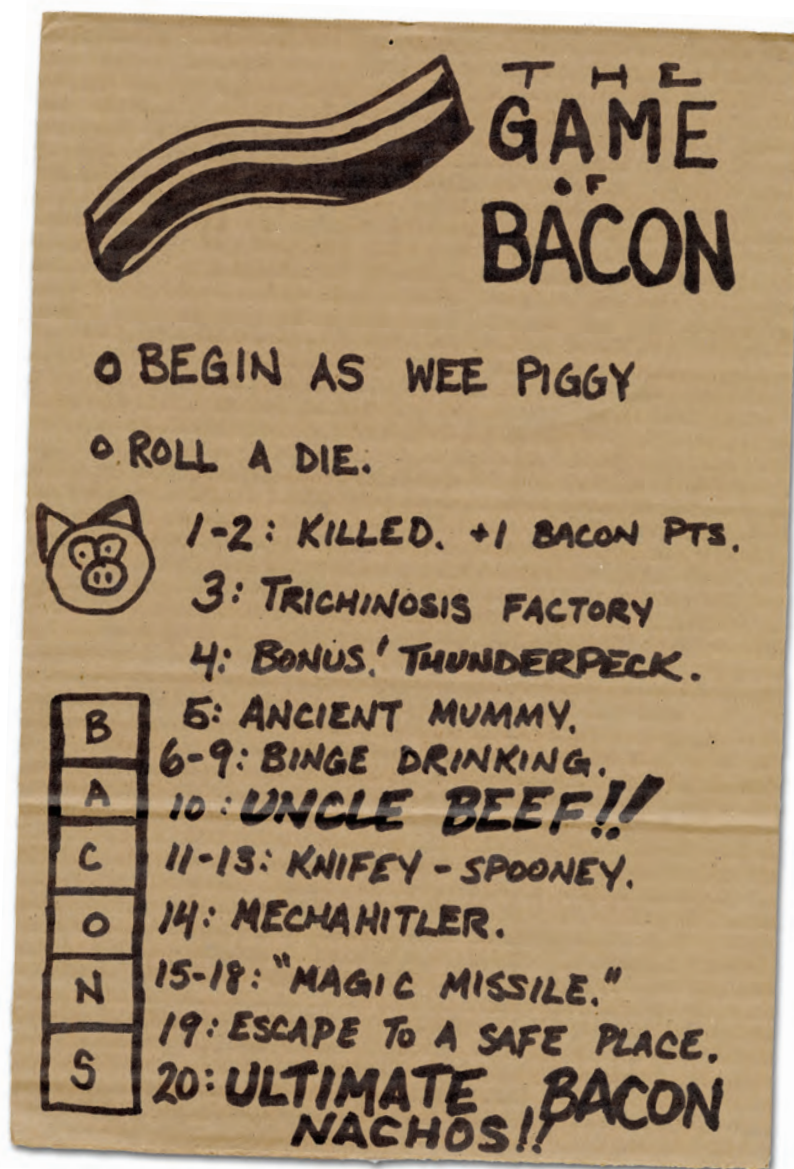 THE
GAME
OF
BACON
o BEGIN AS WEE PIGGY
o ROLL A DIE.
1-2: KILLED. +1 BACON PTS.
3: TRICHINOSIS FACTORY
4: BONUS! THUNDERPECK.
5: ANCIENT MUMMY.
6-9: BINGE DRINKING.
10: UNCLE BEEF!!
11-13: KNIFEY-SPOONEY.
14: MECHAHITLER.
15-18: "MAGIC MISSILE."
19: ESCAPE TO A SAFE PLACE.
20: ULTIMATE BACON
NACHOS!!
B
A
C
O
N
S